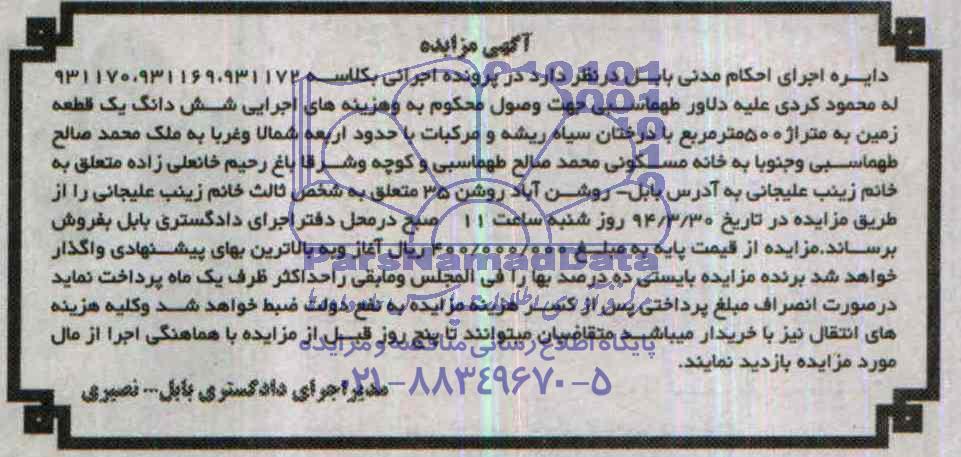 آگهی مزایده
دایره اجرای احکام مدنی بابل درنظر دارد در پرونده اجرائی بکلاسه ۹۳۱۱۷۰،۹۳۱۱۶۹،۹۳۱۱۷۲
له محمود کردی علیه دلاور طهماسبی جهت وصول محکوم به وهزینه های اجرایی شش دانگ یک قطعه
زمین به متراژ ۵۰۰مترمربع با درختان سیاه ریشه و مرکبات با حدود اربعه شمالا وغربا به ملک محمد صالح
طهماسبی وجنوبا به خانه مسکونی محمد صالح طهماسبی و کوچه وشرقا باغ رحیم خانعلی زاده متعلق به
خانم زینب علیجانی به آدرس بابل– روشن آباد روشن ۳۵ متعلق به شخص ثالث خانم زینب علیجانی را از
طریق مزایده در تاریخ ۹۴/۳/۳۰ روز شنبه ساعت ۱۱ صبح درمحل دفتراجرای دادگستری بابل بفروش
برساند.مزایده از قیمت پایه به مبلغ ۴۰۰/۰۰۰/۰۰۰ ریال آغاز وبه بالاترین بهای پیشنهادی واگذار
خواهد شد برنده مزایده بایستی ده درصد بها را فی المجلس ومابقی راحداکثر ظرف یک ماه پرداخت نماید
درصورت انصراف مبلغ پرداختی پس از کسر هزینه مزایده به نفع دولت ضبط خواهد شد وکلیه هزینه
های انتقال نیز با خریدار میباشد متقاضیان میتوانند تا پنج روز قبل از مزایده با هماهنگی اجرا از مال
مورد مزایده بازدید نمایند.
مدیراجرای دادگستری بابل... نصیری
ParsNamadData
پایگاه اطلاع رسانی مناقصه و مزایده
۰۲۱-۸۸۳۴۹۶۷۰-۵